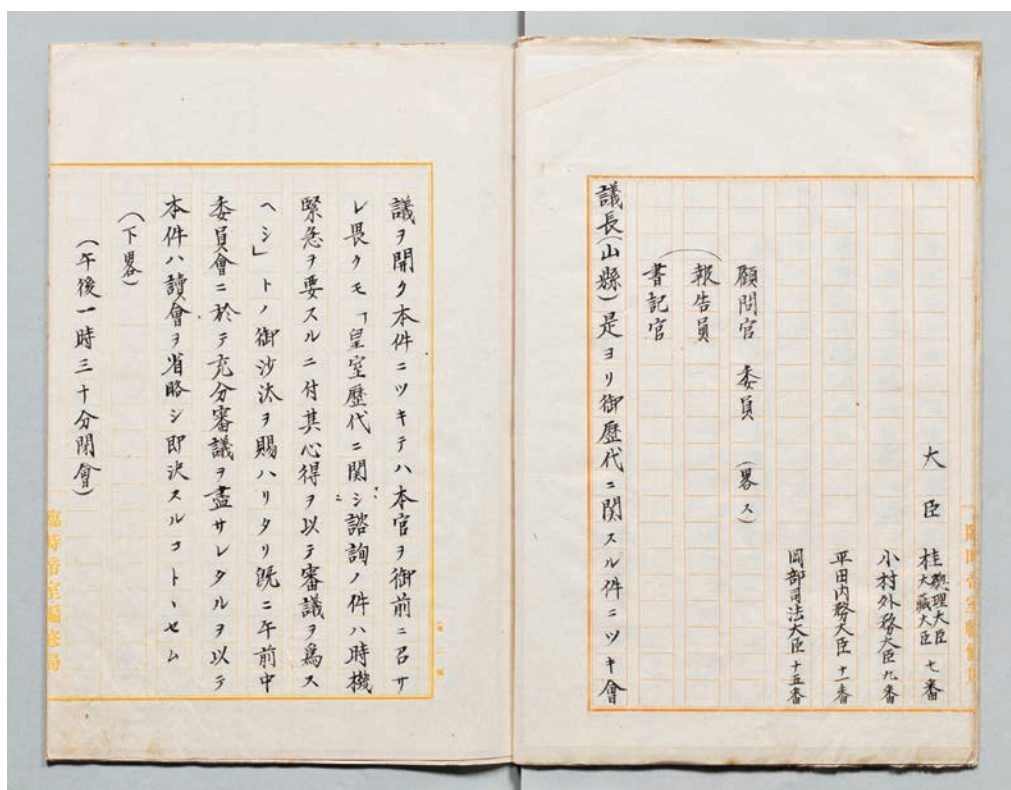 大臣 桂 總理大臣 大藏大臣 七番
小村外務大臣 九番
平田内務大臣 十一番
岡部司法大臣 十五番
顧問官 委員 (畧ス)
(報告員
書記官)
議長(山縣)是ヨリ御歴代ニ関スル件ニツキ會
議ヲ開ク本件ニツキテハ本官ヲ御前ニ召サ
レ畏クモ「皇室歴代ニ関シ諮詢ノ件ハ時機
緊急ヲ要スルニ付其心得ヲ以テ審議ヲ為ス
ヘシ」トノ御沙汰ヲ賜ハリタリ既ニ午前中
委員會ニ於テ充分審議ヲ盡サレタルヲ以テ
本件ハ讀會ヲ省略シ即決スルコトヽセム
(下畧)
(午後一時三十分閉會)
臨時帝室編修局